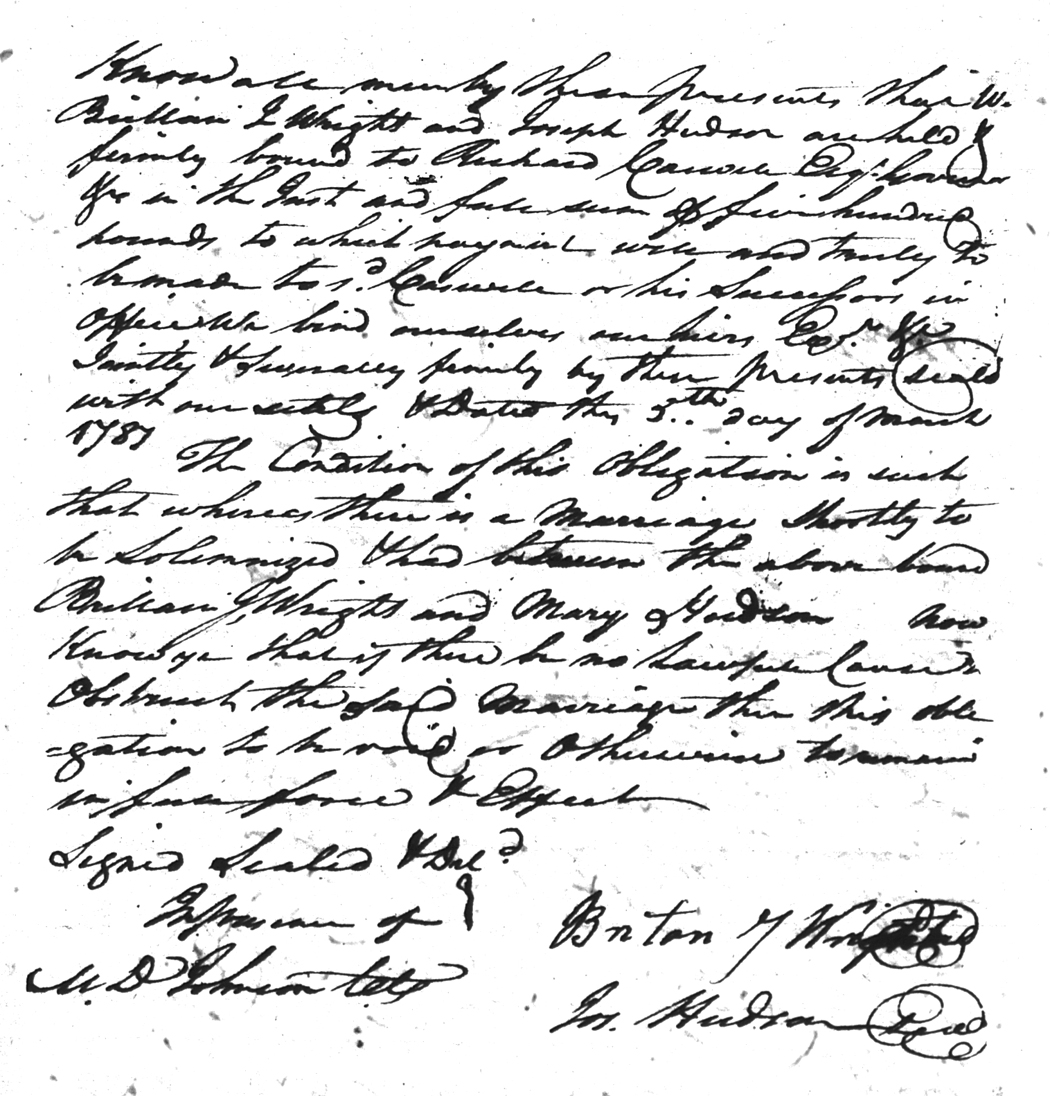 Know all men by these presents that We
Brittain J Wright and Joseph Hudson are held &
firmly bound to Richard Caswell Esqr. Governor
&c in the Just and full sum of five hundred
pounds to which payment well and truly to
be made to sd. Caswell or his Successors in
office We bind ourselves our heirs Exrs. &c
Jointly & Severally firmly by these presents seald
with our seals & Dated this 5th day of March
1787
The Condition of this Obligation is such
that whereas there is a Marriage Shortly to
be Solemnized & had between the above bound
Brittain J Wright and Mary Hudson now
Know ye that if there be no lawful Cause to
Obstruct the said Marriage then this obli
=gation to be void or Otherwise to remain
in full force & Effect
Signed Sealed & Deld
In presence of
M. D Johnson
Briton J Wright Seal
Jos. Hudson Seal